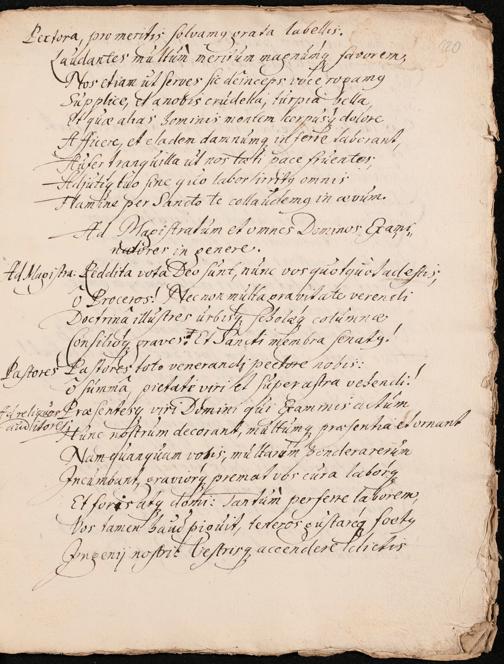 20
Pectora, pro meritis solvamq grata labellis.
Laudantes multum meritum magnumq favorem,
Nos etiam ut serves sic deinceps voce rogamq
Supplice, et a nobis crudelia, turpia bella,
Et quæ alias hominis mentem corpusq dolore
Afficere, et cladem damnumq inferre laborant,
Aufer tranquilla ut nos tati pace fruentes,
Adjuti tuo sine quo labor irritq omnis
Flamine per Sancto te collaudemq in ævum.
Ad Magistratum et omnes Dominos Exami-
natores in genere.
Ad Magistra. Reddita vota Deo sunt, nunc vos quotquot adestis,
ô Proceres! Necnon multa gravitate verendi
Doctrinâ illustres urbisq scholæq columnæ
Consilioq graves! Et Sancti membra senatq!
Pastores! Pastores toto venerandi pectore nobis:
ô summâ pietate viri et super astra vehendi!
Ad reliquos auditores Præsentesq viri Domini qui Examinis actum
Hunc nostrum decorant, multumq præsentia et ornant
Nam quanquam vobis, multarum pondera rerum
Incumbant, graviorq premat vos cura laborq
Et foris atq domi: tantum perferre laborem,
Vos tamen haud piguit, teneros gustareq foetq
Ingenij nostri Vestrisq accendere dictis